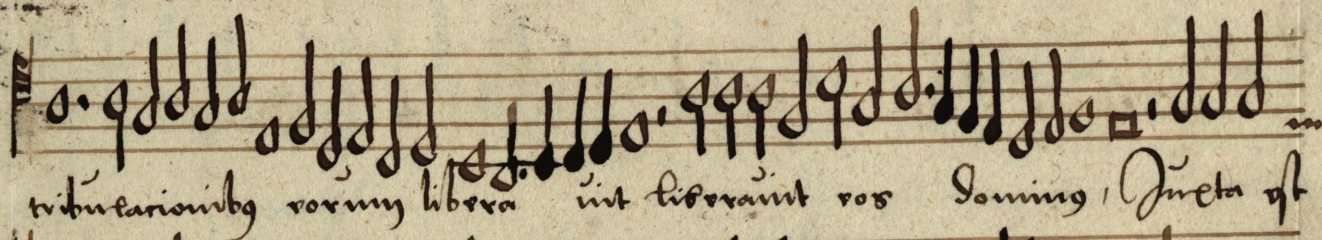 tribulacionibꝰ eorum libera uit liberauit eos dominꝰ, Juxta est